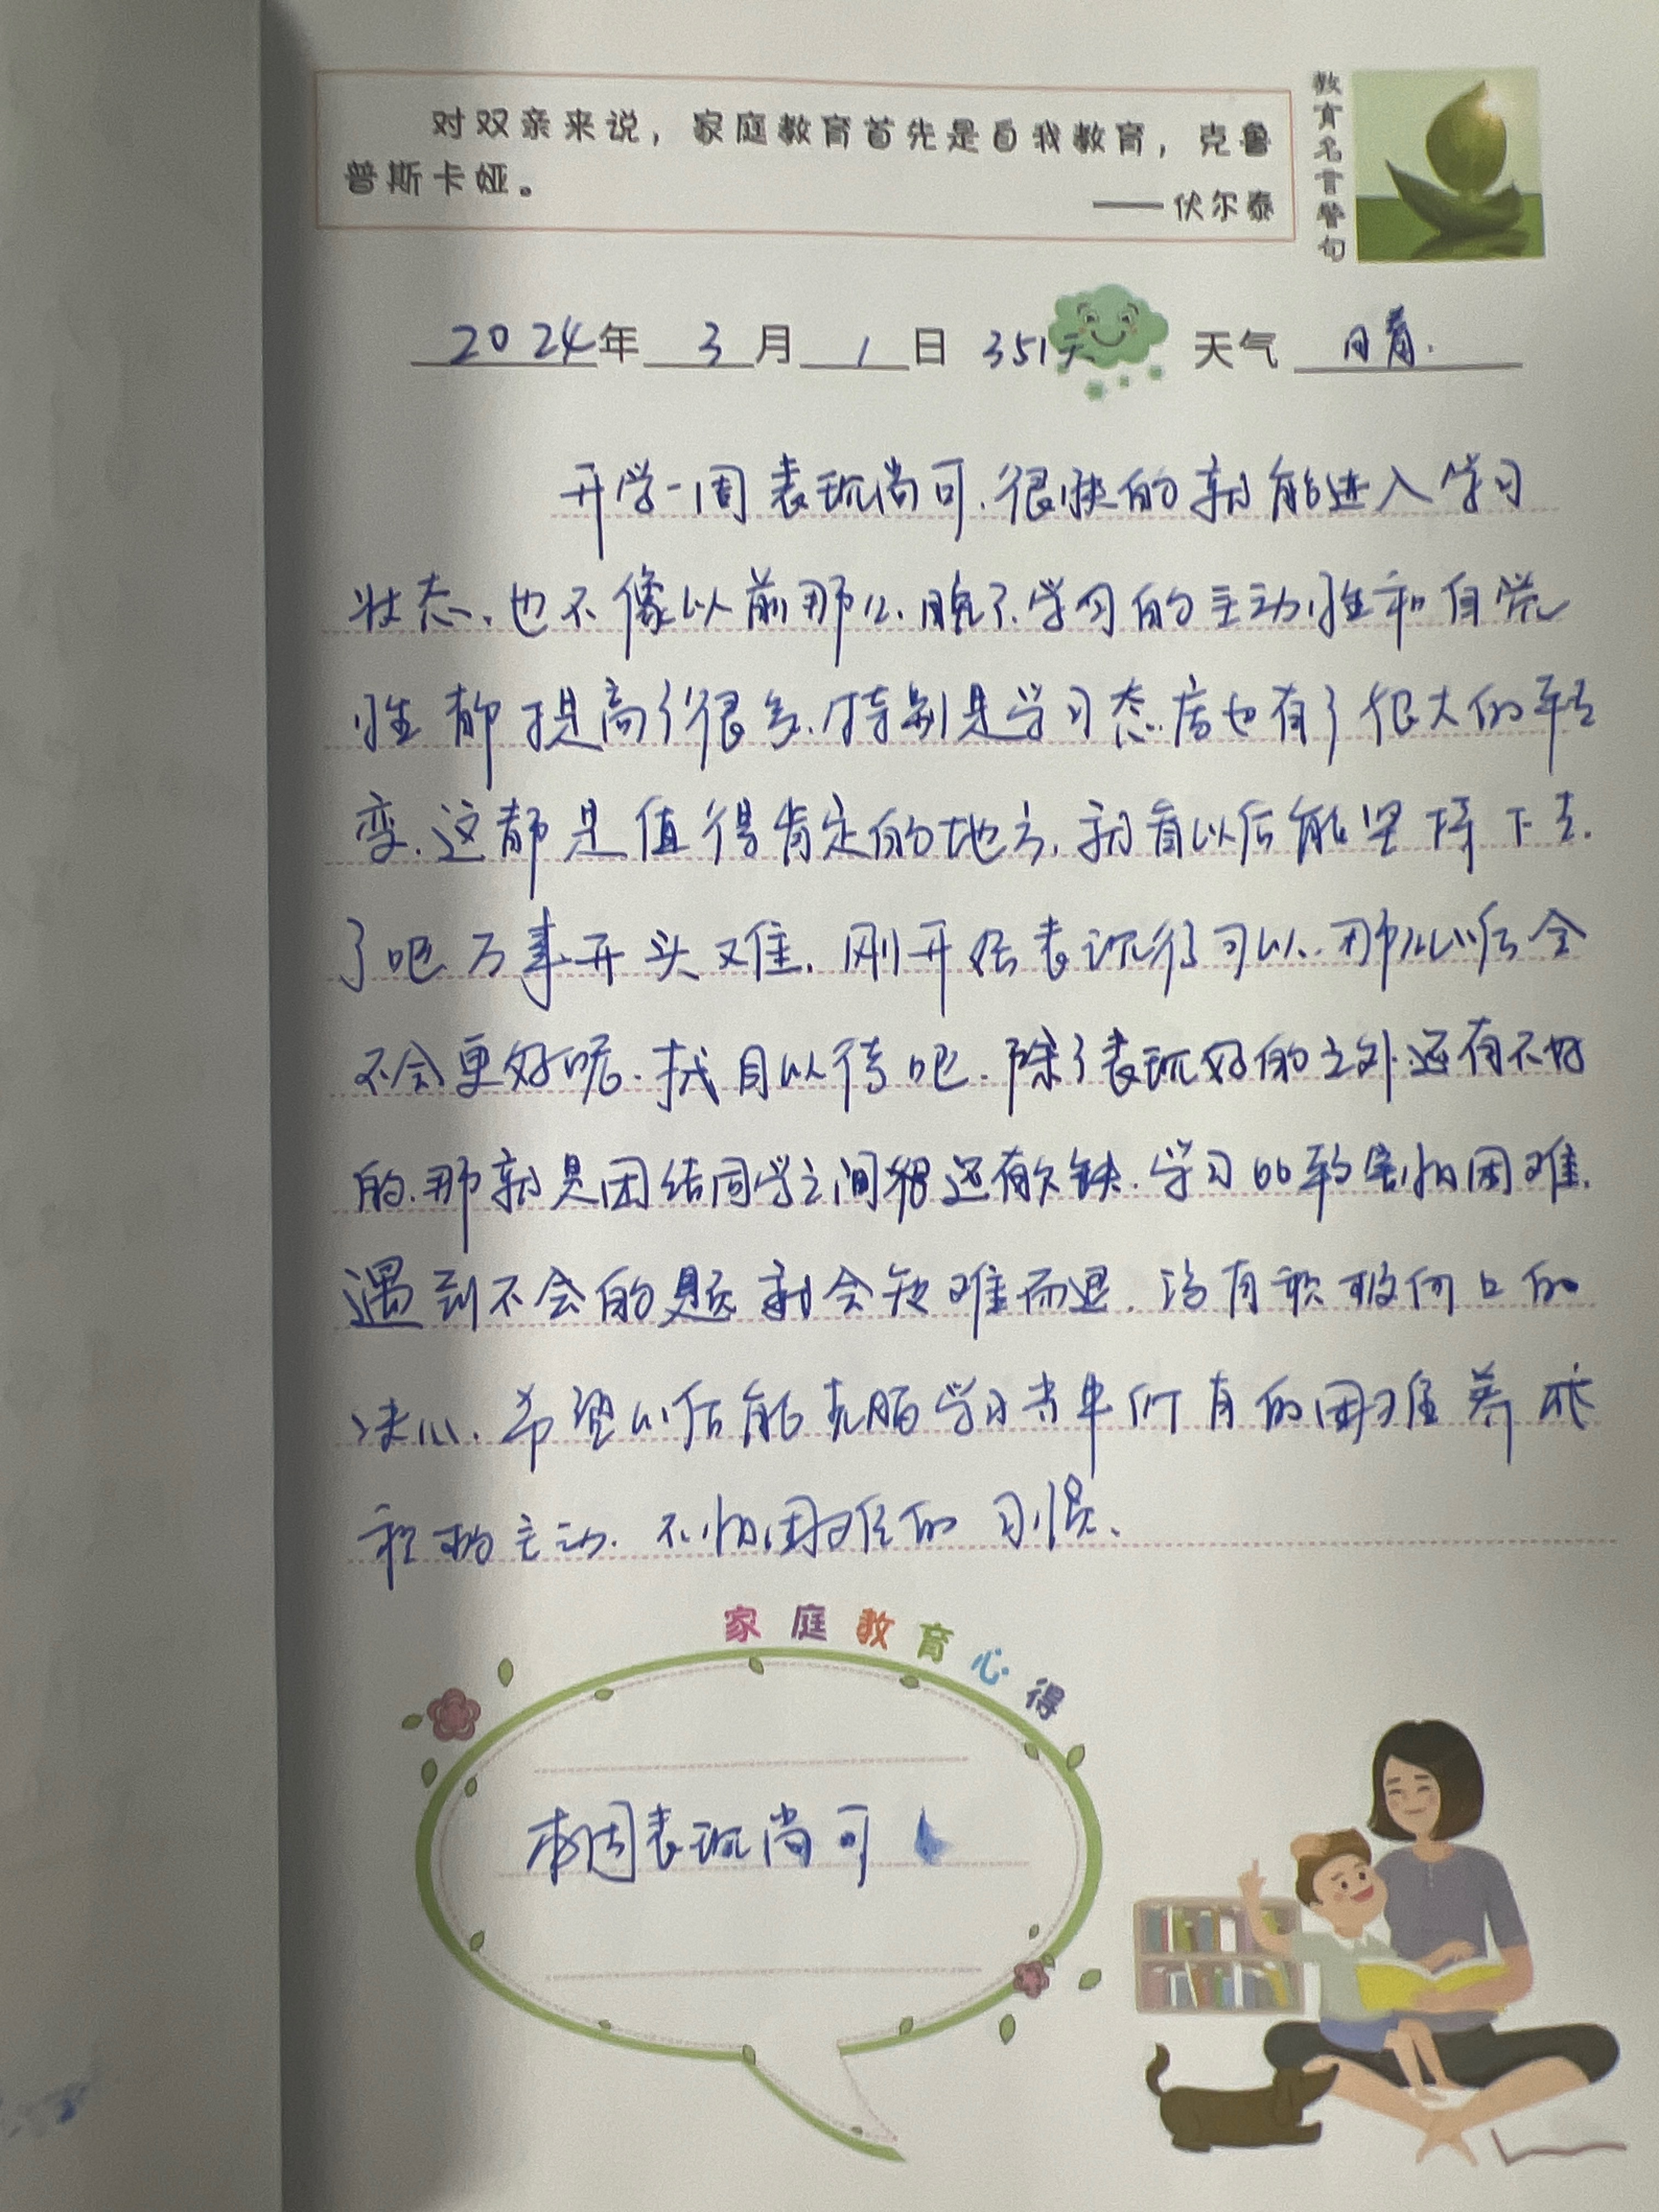 对双亲来说，家庭教育首先是自我教育，克鲁
普斯卡娅。
——伏尔泰
教育名言警句
2024年 3月 1日 351天 天气 晴.
开学一周表现尚可.很快的就能进入学习
状态.也不像以前那么晚了.学习的主动性和自觉
性都提高了很多.特别是学习态度也有了很大的转
变.这都是值得肯定的地方.就看以后能坚持下去.
了吧万事开头难.刚开始表现得可以.那么以后会
不会更好呢.拭目以待吧.除了表现好的之外还有不好
的.那就是团结同学之间还有欠缺.学习60较害怕困难.
遇到不会的题就会知难而退.没有积极向上的
决心.希望以后能克服学习当中所有的困难养成
积极主动.不怕困难的习惯.
家庭教育心得
本周表现尚可